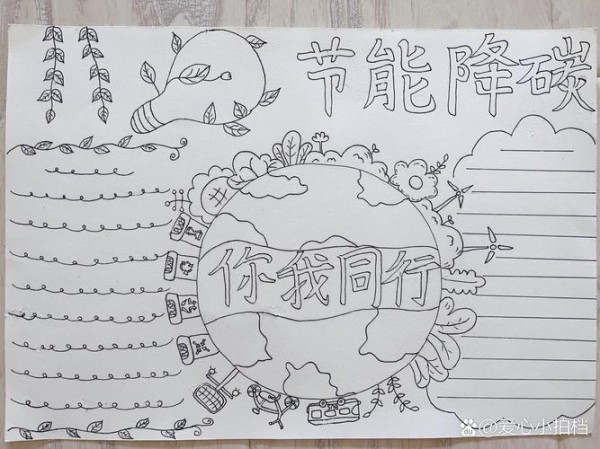 节能降碳
你我同行
爱心小拍档